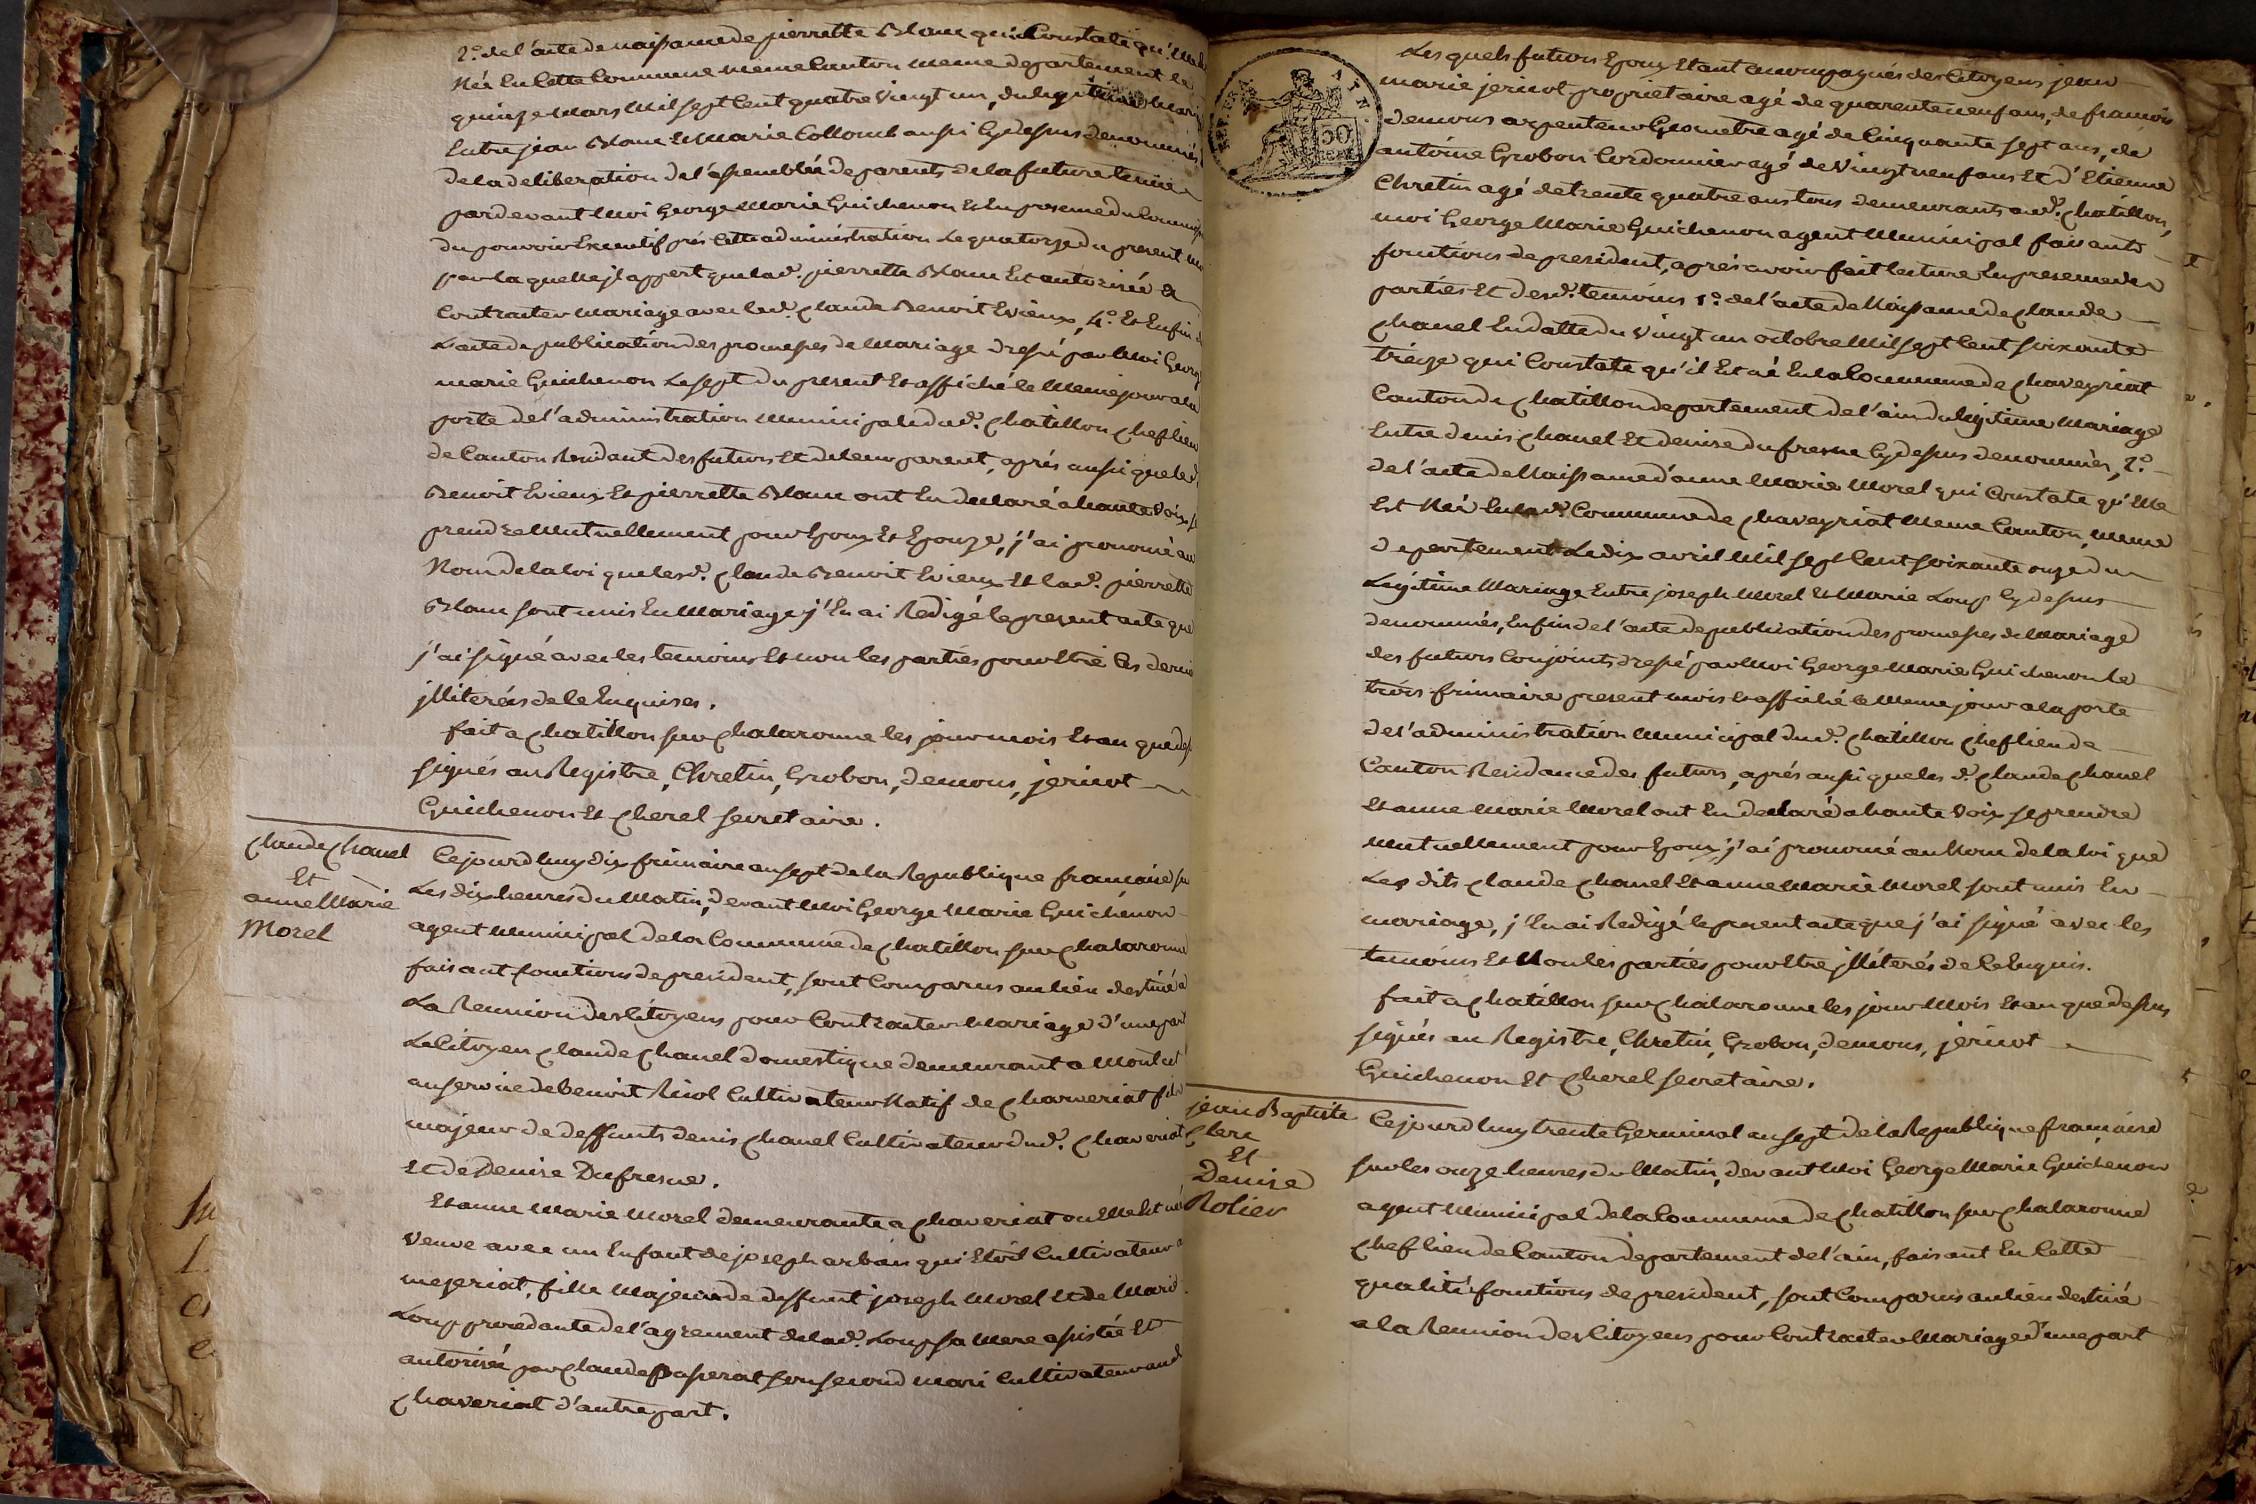 2.° de l'acte de naissance de pierrette Blanc qui Constate qu'elle
Née En Cette Commune meme Canton meme departement le
quinze mars mil sept Cent quatre vingt un, du legitime mari
Entre jean Blanc Et Marie Collomb aussi Cy dessus denommés
de la deliberation de l'assemblée de parents de la future tenue
pardevant moi George Marie Guichenon Et En presence du Commis
du pouvoir Executif prés Cette administration Le quatorze du present
par laquelle jl appert que lad. pierrette Blanc Est autorisée a
Contracter Mariage avec led. Claude Benoit Evieux, 4.° Et Enfin de
L'acte de publication des promesses de Mariage dressé par Moi George
marie Guichenon Le sept du present Et affiché le meme jour a la
porte de l'administration municipale dud. Chatillon Chef lieu
de Canton Residant des futurs Et de leur parent, aprés aussi que led.
Benoit Evieux Et pierrette Blanc ont Eu declaré a haute voix se
prendre Mutuellement pour Epoux Et Epouze, j'ai prononcé au
Nom de la loi que lesd. Claude Benoit Evieux Et lad. pierrette
Blanc sont unis En Mariage j'En ai Redigé le present acte que
j'ai signé avec les temoins Et non les parties pour Etre les
jlliterées de le Enquises.
fait a Chatillon sur Chalaronne les jour mois Et an que
signés au Registre, Chretin, Grobon, demons, jericot
Guichenon Et Cherel secretaire.
Claude Chanel
Et
anne Marie
Morel
Cejourd'huy dix frimaire an sept de la Republique francaise sur
Les dix heures du Matin, devant Moi George Marie Guichenon
agent municipal de la Commune de Chatillon sur Chalaronne
faisant fonctions de president, sont Comparus au lieu destiné a
La Reunion des Citoyens pour Contracter Mariage d'une part
Le Citoyen Claude Chanel domestique demeurant a
au service de benoit Cultivateur Natif de Chaveriat fils
majeur de deffunts denis Chanel Cultivateur dud. Chaveriat
Et de Denise Dufresne.
Et anne Marie Morel demeurante a Chaveriat ou Elle Est née
veuve avec un Enfant de joseph arban qui Etoit Cultivateur a
mezeriat, fille Majeure de deffunt joseph Morel Et de Marie
Loup procedante de l'agrement de lad. Loup sa Mere assistée Et
autorisée par Claude son second mari Cultivateur aud.
Chaveriat d'autre part.
50
Lesquels futurs Epoux Etant accompagnés des Citoyens jean
marie jericot proprietaire agé de quarente neuf ans, de francois
demons arpenteur Geometre agé de Cinquante sept ans, de
antoine Grobon Cordonnier agé de vingt neuf ans Et d'Etienne
Chretin agé de trente quatre ans tous demeurants aud. Chatillon,
moi George Marie Guichenon agent Municipal faisant
fonctions de president, aprés avoir fait lecture En presence des
parties Et desd. temoins 1.° de l'acte de Naissance de Claude
Chanel En datte du vingt un octobre Mil sept Cent soixante
treize qui Constate qu'il Est né En la Commune de Chaveyriat
Canton de Chatillon departement de l'ain du legitime Mariage
Entre denis Chanel Et denise dufresne Cy dessus denommés, 2.°
de l'acte de Naissance d'anne Marie Morel qui Constate qu'Elle
Est Née En lad. Commune de Chaveyriat Meme Canton, meme
departement Le dix avril Mil sept Cent soixante onze du
Legitime Mariage Entre joseph Morel Et Marie Loup Cy dessus
denommés, Enfin de l'acte de publication des promesses de Mariage
des futurs Conjoints dressé par Moi George Marie Guichenon le
trois frimaire present mois Et affiché le Meme jour a la porte
de l'administration Municipal dud. Chatillon Chef lieu de
Canton Residance des futurs, aprés aussi que les d. Claude Chanel
Et anne Marie Morel ont Eu declaré a haute voix se prendre
mutuellement pour Epoux, j'ai prononcé au Nom de la loi que
Les dits Claude Chanel Et anne Marie Morel sont unis En
mariage, j'En ai Redigé le present acte que j'ai signé avec les
temoins Et Non les parties pour Etre jlliterés de le Enquis.
fait a Chatillon sur Chalaronne les jour Mois Et an que dessus
signés au Registre, Chretin, Grobon, demons, jericot
Guichenon Et Cherel secretaire.
jean Baptiste
Clerc
Et
Denise
Rolier
Cejourd'huy trente Germinal an sept de la Republique francaise
sur les onze heures du Matin, devant Moi George Marie Guichenon
agent Municipal de la Commune de Chatillon sur Chalaronne
Chef lieu de Canton departement de l'ain, faisant En Cette
qualité fonctions de president, sont Comparus au lieu destiné
a la Reunion des Citoyens pour Contracter Mariage d'une part